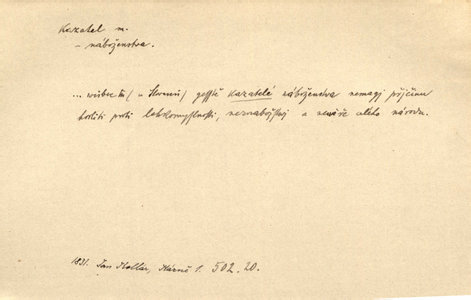 Kazatel m.
– náboženstva.
... (u Slowanů) gesstě kazatelé náboženstva nemagj přjčinu
proti lehkomyslnosti, neznabožstwj a newáře celého národu.
1831. Jan Kollár, Nárně 1. 502. 20.